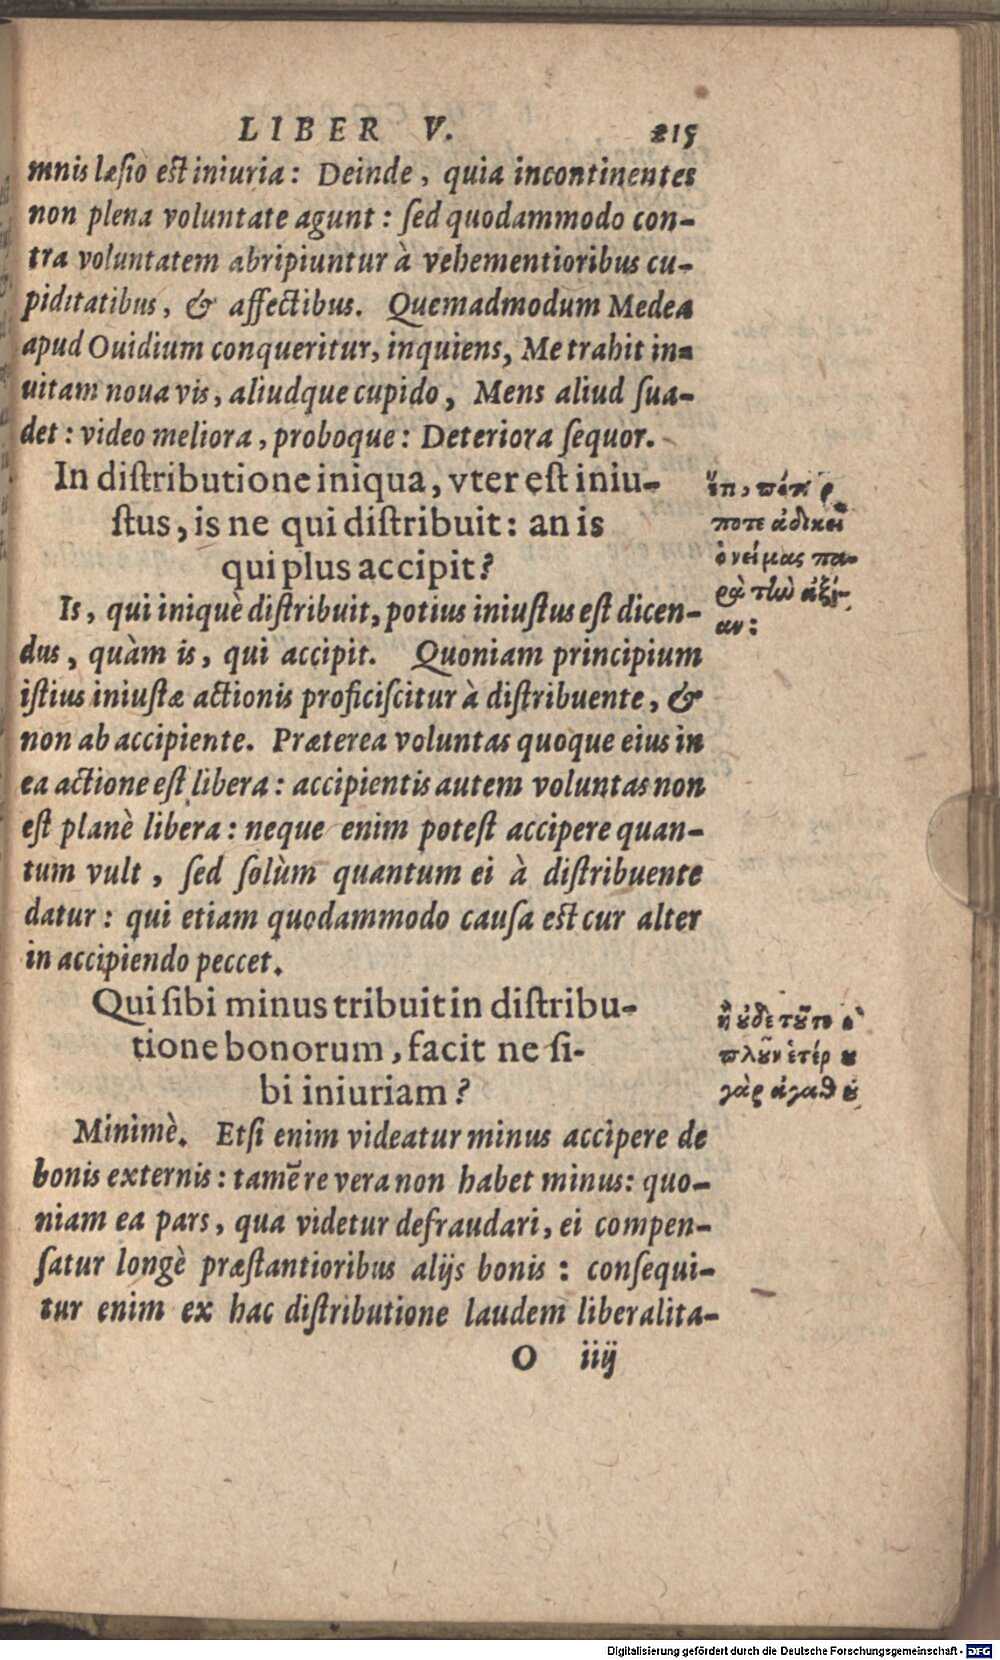 LIBER V. 215
mnis læsio est iniuria: Deinde, quia incontinentes
non plena voluntate agunt: sed quodammodo con-
tra voluntatem abripiuntur à vehementioribus cu-
piditatibus, & affectibus. Quemadmodum Medea
apud Ouidium conqueritur, inquiens, Me trahit in-
uitam noua vis, aliudque cupido, Mens aliud sua-
det: video meliora, proboque: Deteriora sequor.
In distributione iniqua, vter est iniu-
stus, is ne qui distribuit: an is
qui plus accipit?
ποτε ἀδικεῖ
ὁ νείμας πα-
ρὰ τὴν ἀξί-
αν:
Is, qui iniquè distribuit, potius iniustus est dicen-
dus, quàm is, qui accipit. Quoniam principium
istius iniustæ actionis proficiscitur à distribuente, &
non ab accipiente. Præterea voluntas quoque eius in
ea actione est libera: accipientis autem voluntas non
est planè libera: neque enim potest accipere quan-
tum vult, sed solùm quantum ei à distribuente
datur: qui etiam quodammodo causa est cur alter
in accipiendo peccet.
Qui sibi minus tribuit in distribu-
tione bonorum, facit ne si-
bi iniuriam?
ἢ οὐδὲ τοῦτο
πλοῦν ἑτέρου
γὰρ ἀγαθοῦ
Minimè. Etsi enim videatur minus accipere de
bonis externis: tamẽ re vera non habet minus: quo-
niam ea pars, qua videtur defraudari, ei compen-
satur longè præstantioribus alijs bonis: consequi-
tur enim ex hac distributione laudem liberalita-
O iiij
Digitalisierung gefördert durch die Deutsche Forschungsgemeinschaft - DFG